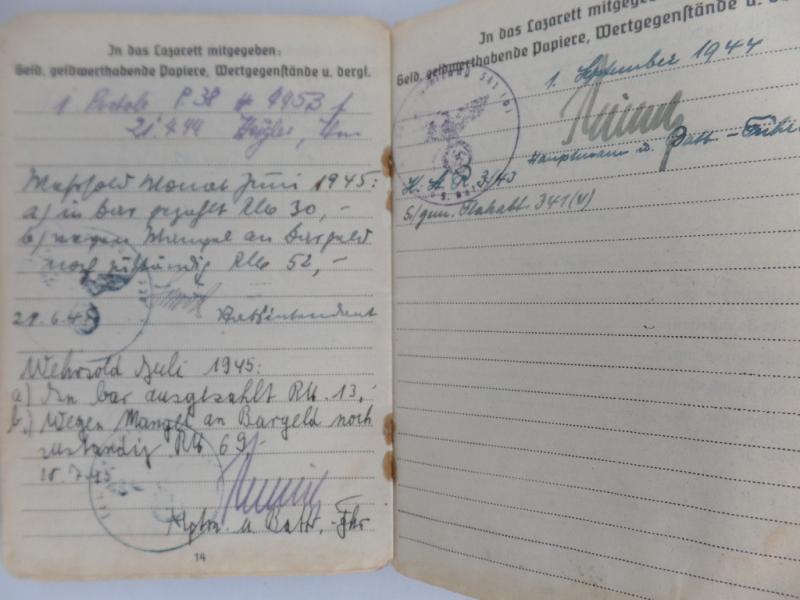 In das Lazarett mitgegeben:
Geld, geldwerthabende Papiere, Wertgegenstände u. dergl.
1 Pistole P. 38 # 4953 f
21.4.44
Wehrsold Monat Juni 1945:
a) in bar gezahlt RM 30,-
b) wegen Mangel an Bargeld
noch zuständig RM 52,-
29.6.45 Stabsintendant
Wehrsold Juli 1945:
a) In bar ausgezahlt RM. 13,-
b.) Wegen Mangel an Bargeld noch
zuständig RM 69,-
10.7.45
Hptm. u. Battr.-Fhr
14
In das Lazarett mitgegeben
Geld, geldwerthabende Papiere, Wertgegenstände u. de
1. September 1944
Hauptmann u. Batt.-Führer
5/gem. Flakabt. 341(v)